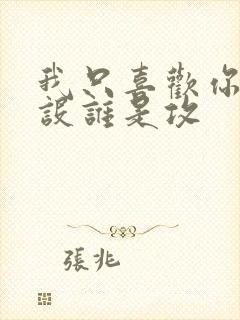 我只喜歡你
設誰是攻
張兆